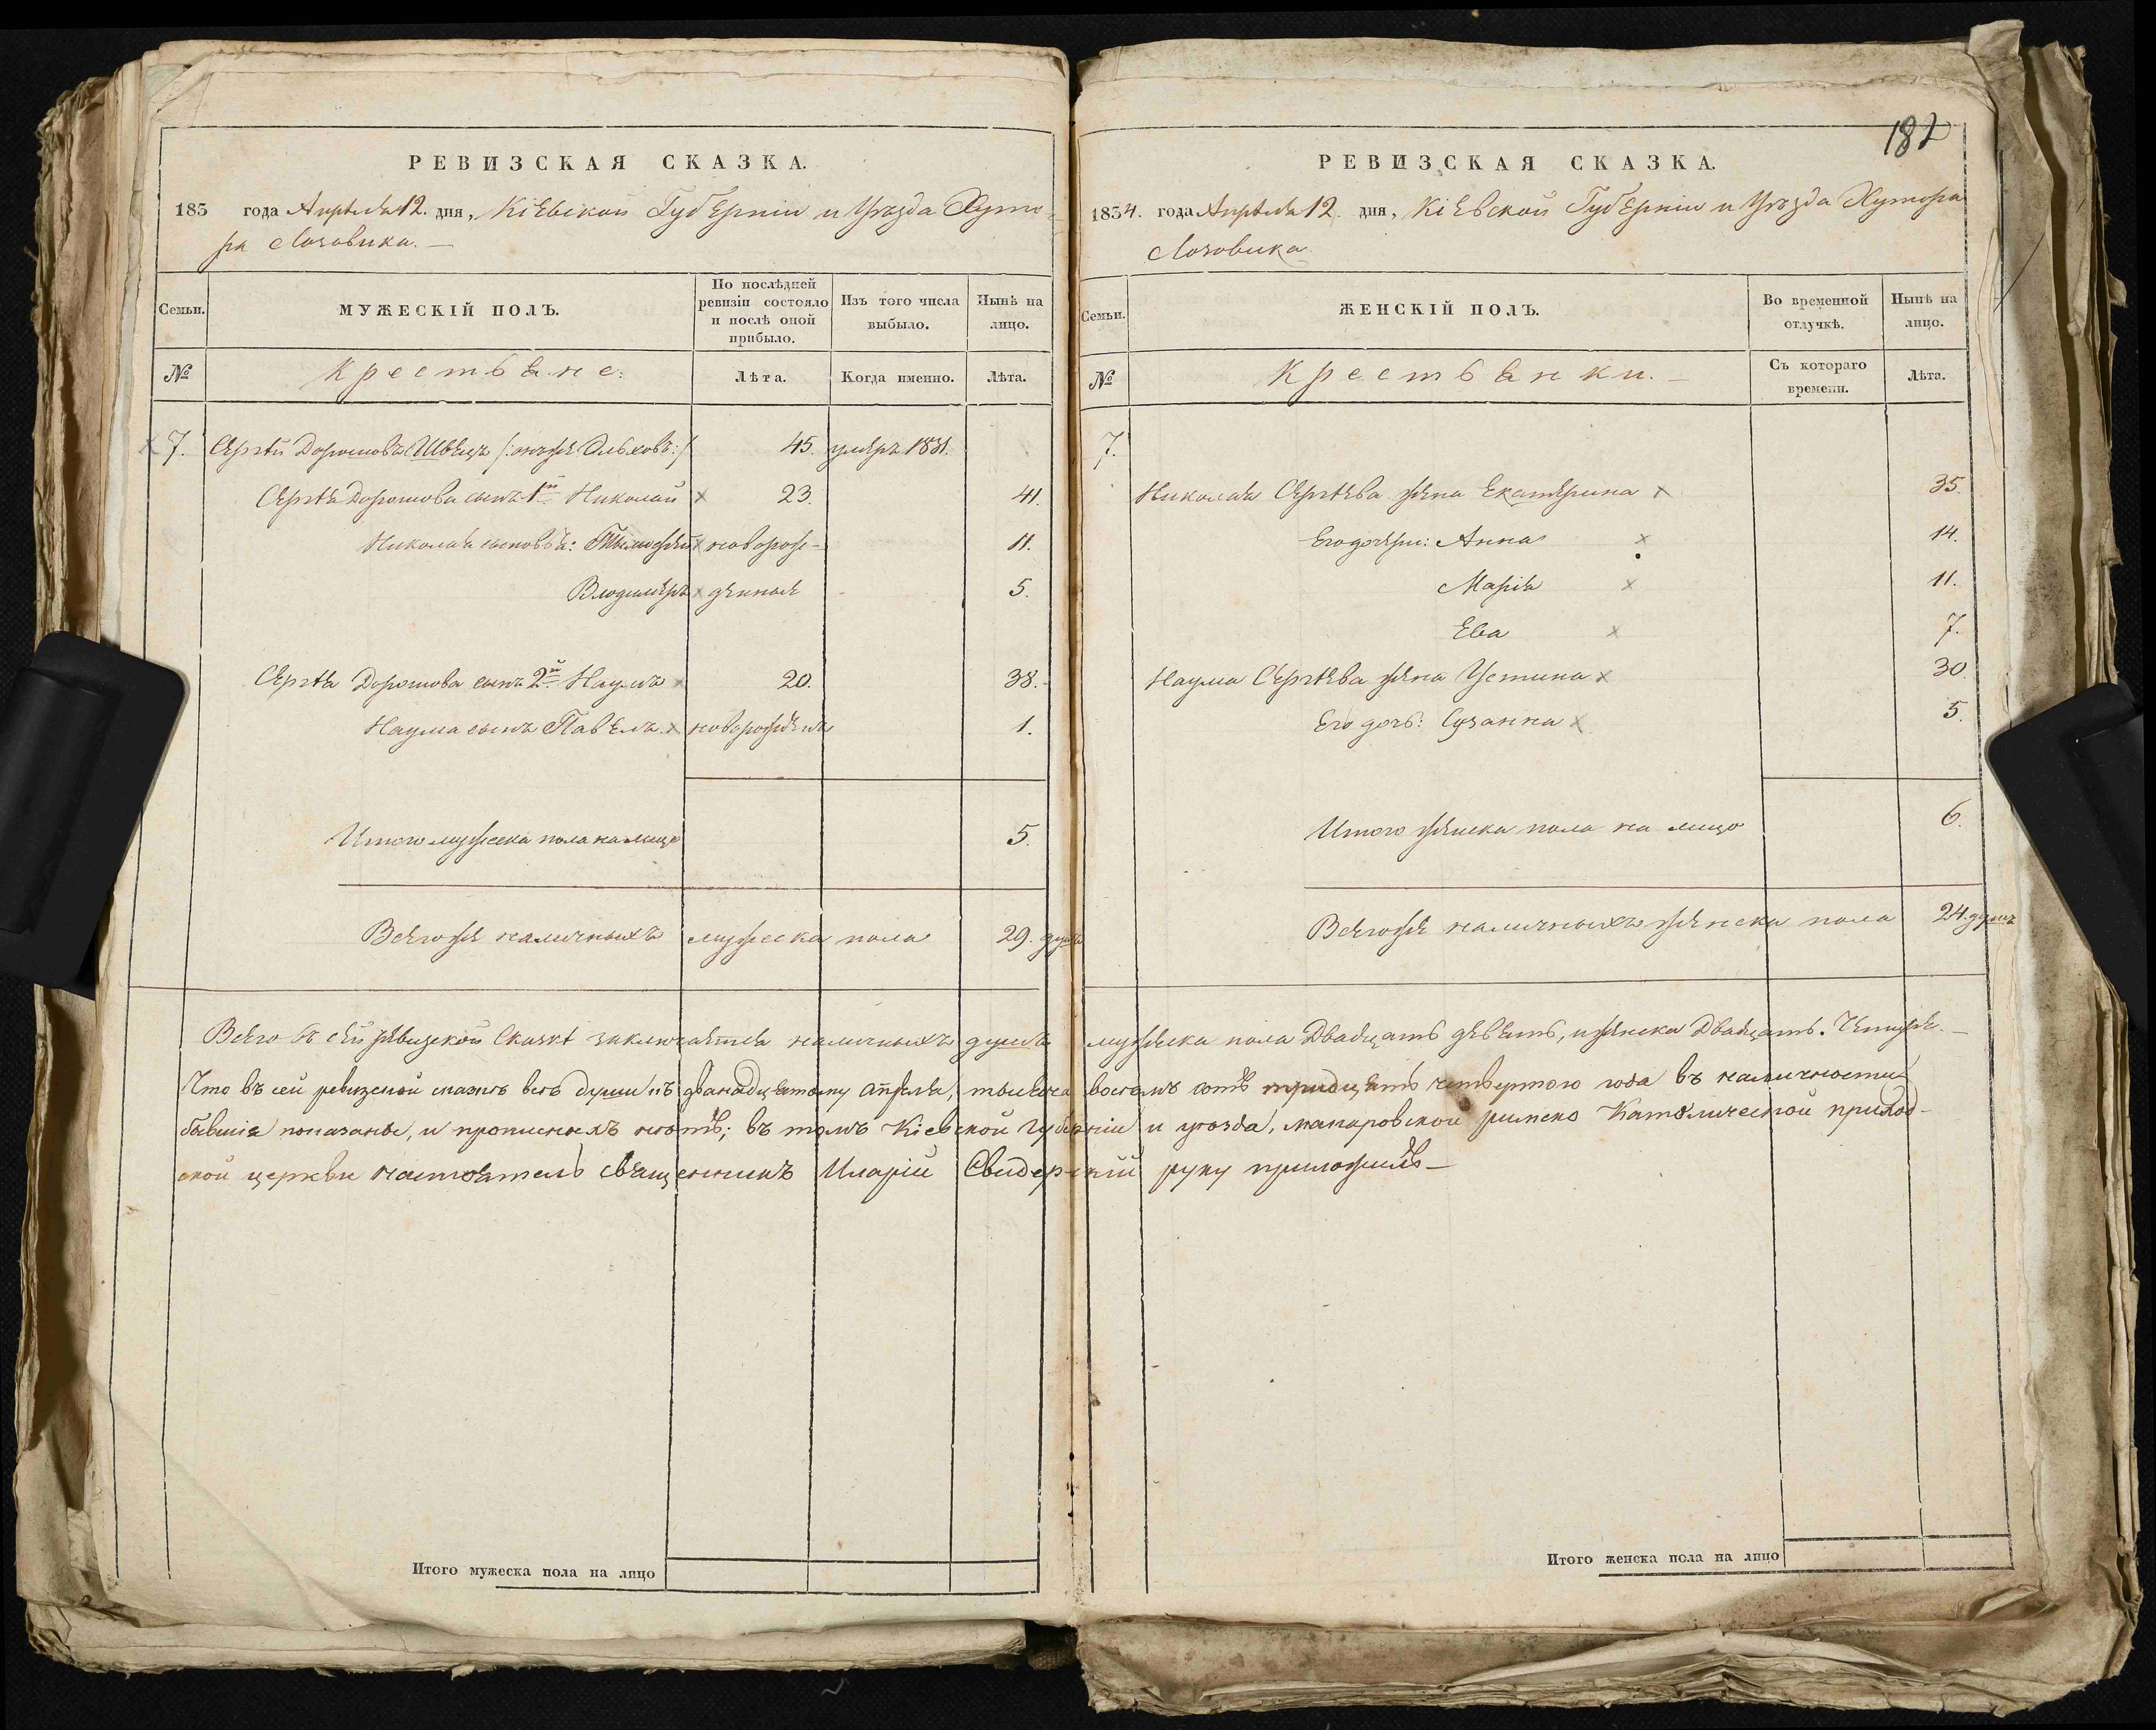 РЕВИЗСКАЯ СКАЗКА.
183 года Апрѣля 12. дня, Кіевской Губерніи и Уѣзда Хуто-
ра Лозовика. —
Семьи.
МУЖЕСКІЙ ПОЛЪ.
По послѣдней ревизіи состояло и послѣ оной прибыло.
Изъ того числа выбыло.
Нынѣ на лицо.
№
Крестьяне:
Лѣта.
Когда именно.
Лѣта.
7. Сергѣй Дорошовъ Швецъ /: онъже Ольховъ:/ 45. умеръ 1831.
Сергѣя Дорошова сынъ 1й Николай 23. 41.
Николая сыновья: Тымофей новорож- 11.
Влодимеръ денные 5.
Сергѣя Дорошова сынъ 2й Наумъ 20. 38.
Наума сынъ Павелъ. новорожденъ 1.
Итого мужеска пола на лице 5.
Всегоже наличныхъ мужеска пола 29. душъ
Итого мужеска пола на лицо
182
РЕВИЗСКАЯ СКАЗКА.
1834. года Апрѣля 12. дня, Кіевской Губерніи и Уѣзда Хутора
Лозовика
Семьи.
ЖЕНСКІЙ ПОЛЪ.
Во временной отлучкѣ.
Нынѣ на лицо.
№
Крестьянки. —
Съ котораго времени.
Лѣта.
7.
Николая Сергѣева жена Екатерина 35.
Его дочери: Анна 14.
Марія 11.
Ева 7.
Наума Сергѣева жена Устина 30.
Его дочь: Сузанна 5.
Итого женска пола на лицо 6.
Всегоже наличныхъ женска пола 24. душъ
Всего въ сей ревизской Сказкѣ заключается наличныхъ душъ мужеска пола Двадцать девять, и женска Двадцать. Четыре. —
Что въ сей ревизской сказкѣ всѣ души къ двенадцатому апреля, тысяча восемъ сотъ тридцать четвертого года въ наличности
бывшія показаны, и прописныхъ нѣтъ; въ томъ Кіевской Губерніи и уѣзда, макаровской римско Католической приход-
ской церкви настоятель священникъ Иларій Свидерскій руку приложилъ —
Итого женска пола на лицо